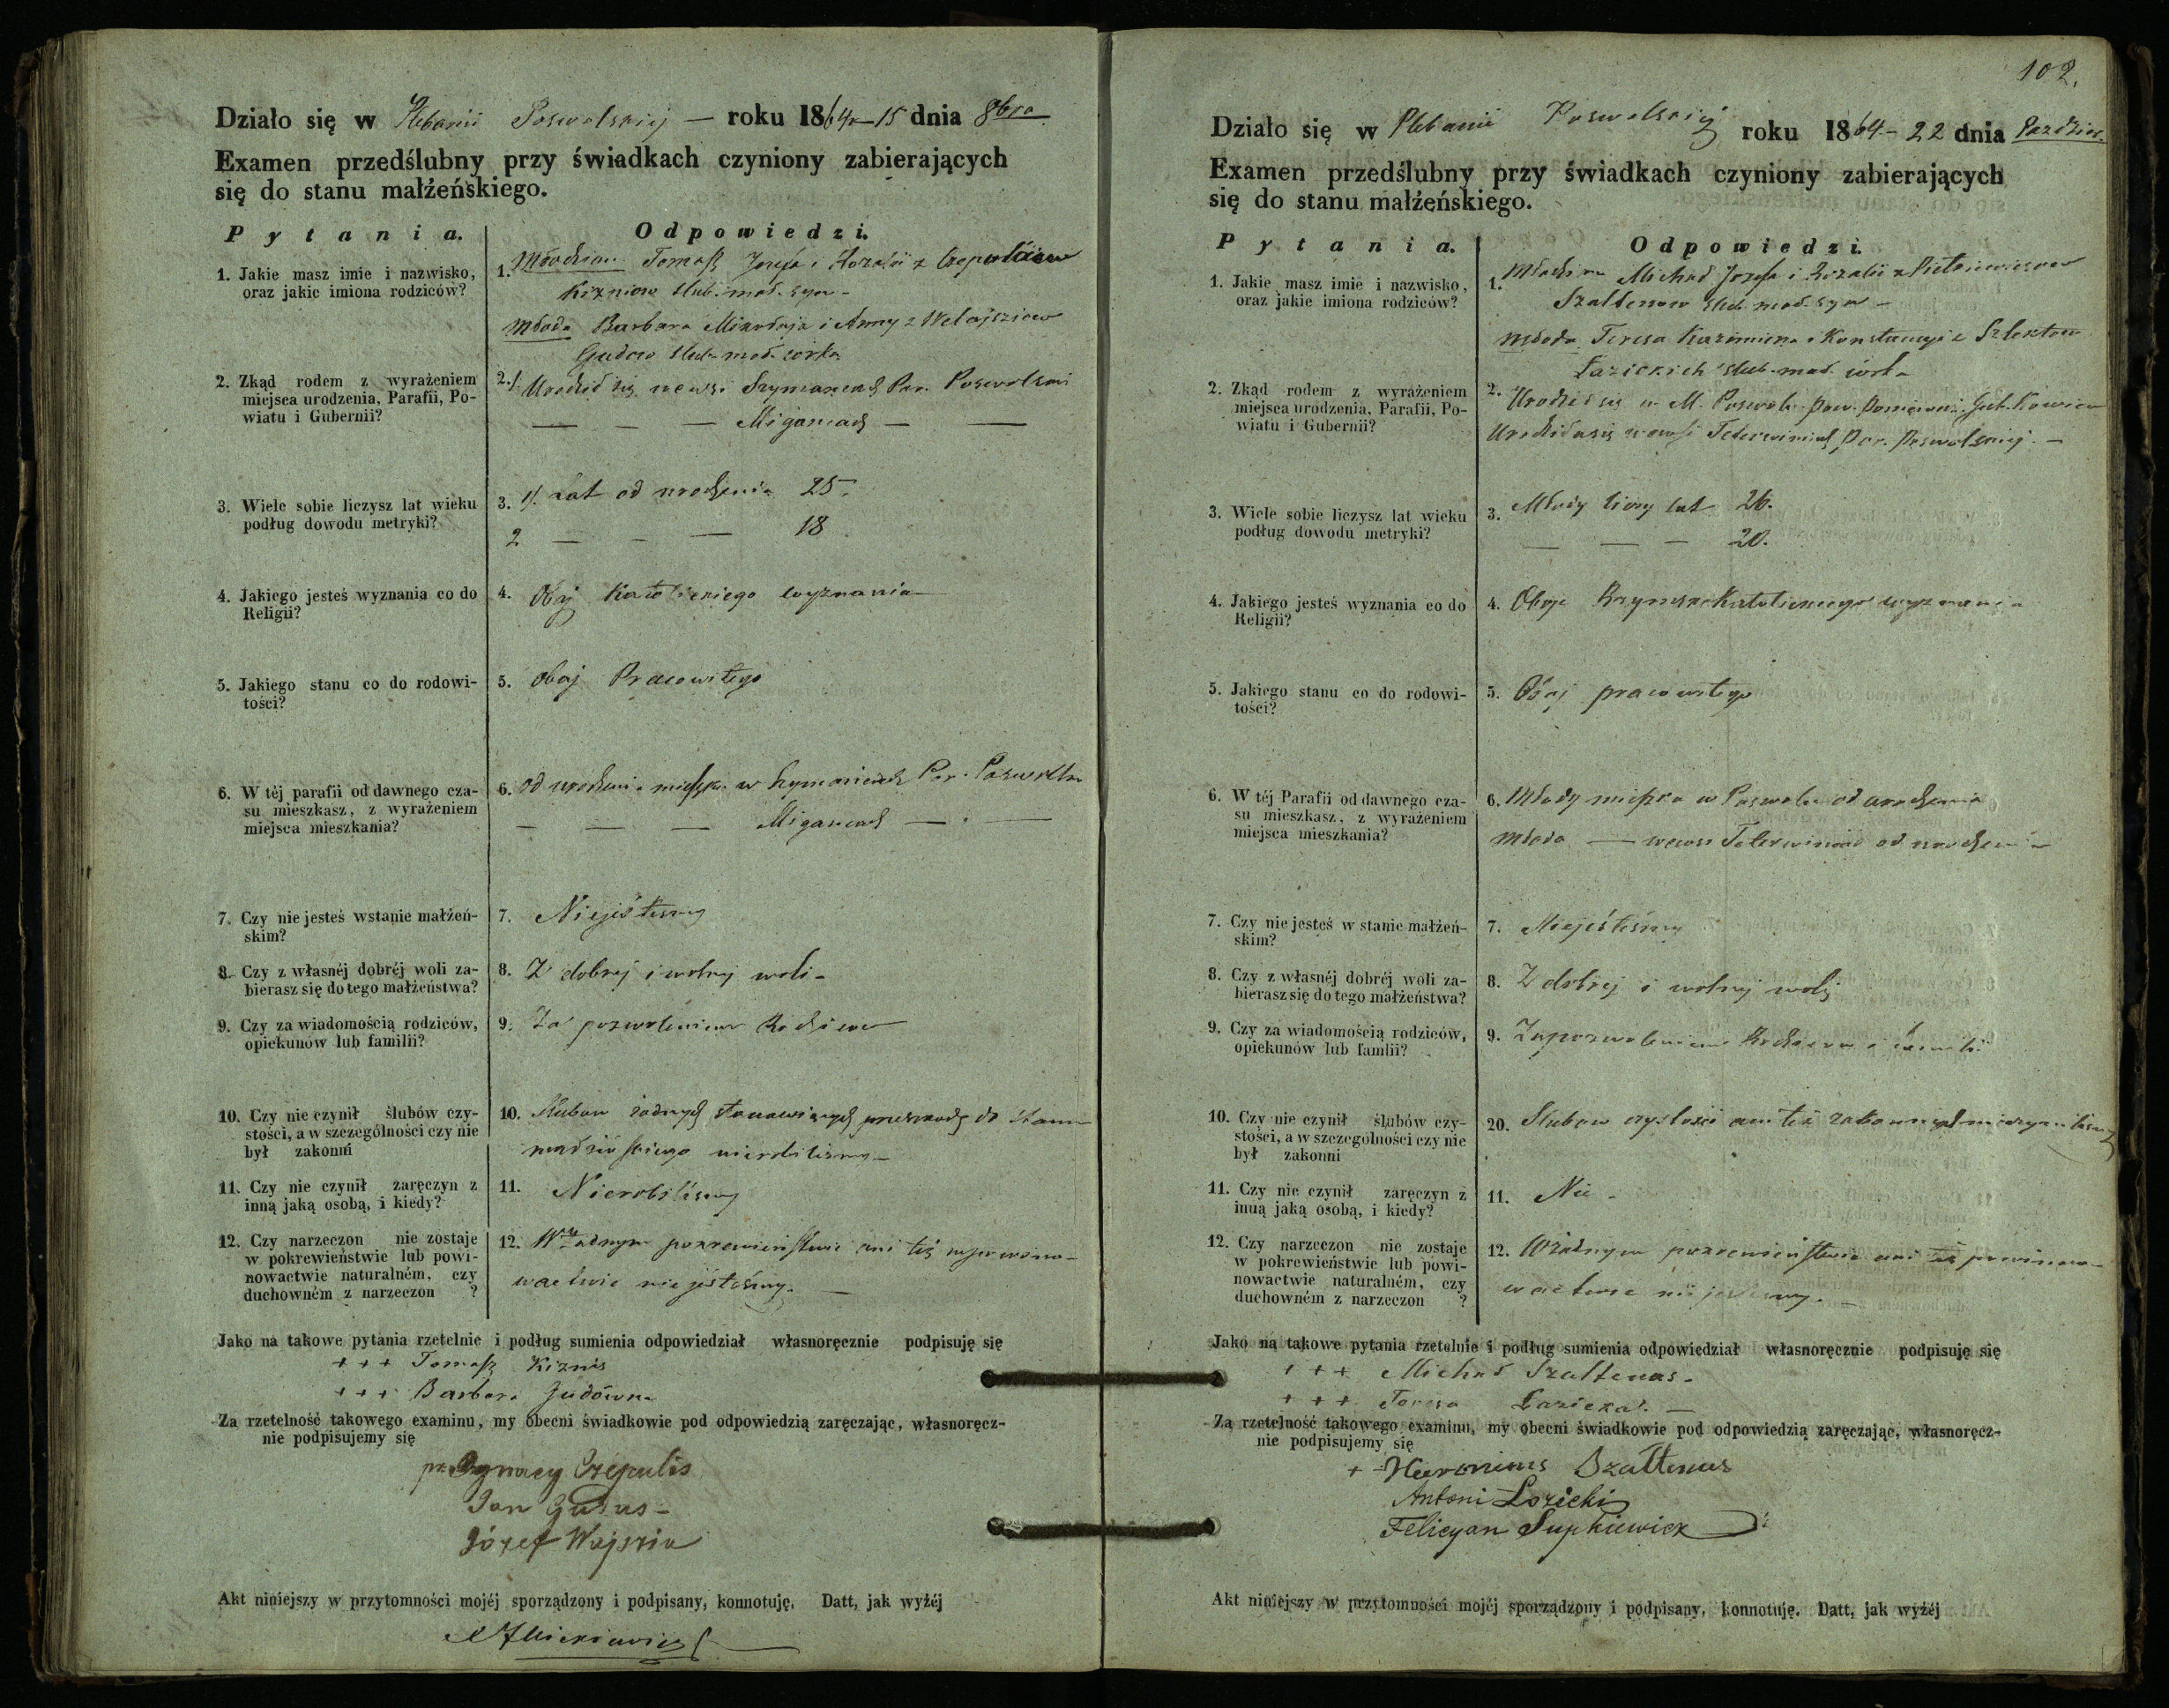 Działo się w Plebanii Poswolskiej — roku 1864 — 15 dnia 8bra
Examen przedślubny przy świadkach czyniony zabierających
się do stanu małżeńskiego.
Pytania.
Odpowiedzi.
1. Jakie masz imie i nazwisko,
oraz jakie imiona rodziców?
1. Młodzian Tomasz Jozefa i Rozalii z Czepulisow
Kiznisow slub. mał. syn —
Młoda Barbara Mikołaja i Anny z Welajsziow
Gudow slub. mał. corka
2. Zkąd rodem z wyrażeniem
miejsca urodzenia, Parafii, Po-
wiatu i Gubernii?
2. Urodził się we wsi Szymancach Par. Poswolskiej
— — — Migancach — —
3. Wiele sobie liczysz lat wieku
podług dowodu metryki?
3. 1. Lat od urodzenia 25.
2 — — — 18
4. Jakiego jesteś wyznania co do
Religii?
4. Obaj Katolickiego wyznania
5. Jakiego stanu co do rodowi-
tości?
5. Obaj Pracowitego
6. W téj parafii od dawnego cza-
su mieszkasz, z wyrażeniem
miejsca mieszkania?
6. od urodzenia mieszka w Szymancach Par. Poswolskiej
— — — Migancach — . —
7. Czy nie jesteś wstanie małżeń-
skim?
7. Niejesteśmy
8. Czy z własnéj dobréj woli za-
bierasz się do tego małżeństwa?
8. Z dobrej i wolnej woli —
9. Czy za wiadomością rodziców,
opiekunów lub familii?
9. Za pozwoleniem Rodziców
10. Czy nie czynił ślubów czy-
stości, a w szczególności czy nie
był zakonni
10. Slubow żadnych stanowiących przeszkodę do stanu
małżeńskiego nierobilismy —
11. Czy nie czynił zaręczyn z
inną jaką osobą, i kiedy?
11. Nierobilismy
12. Czy narzeczon nie zostaje
w pokrewieństwie lub powi-
nowactwie naturalném, czy
duchowném z narzeczon ?
12. W żadnym pokrewieństwie ani też w powino-
wactwie nie jesteśmy. —
Jako na takowe pytania rzetelnie i podług sumienia odpowiedział własnoręcznie podpisuję się
+ + + Tomasz Kiznis
+ + + Barbara Gudówna
Za rzetelność takowego examinu, my obecni świadkowie pod odpowiedzią zaręczając, własnoręcz-
nie podpisujemy się
Ignacy Czepulis
Jan Gudas —
Józef Wajszia
Akt niniejszy w przytomności mojéj sporządzony i podpisany, konnotuję. Datt, jak wyżéj
102.
Działo się w Plebanii Poswolskiej roku 1864 — 22 dnia Paździer.
Examen przedślubny przy świadkach czyniony zabierających
się do stanu małżeńskiego.
Pytania.
Odpowiedzi.
1. Jakie masz imie i nazwisko,
oraz jakie imiona rodziców?
1. Młodzian Michał Jozefa i Rozalii z Pietkiewiczow
Szaltenow slub. mał. syn —
Młoda Teresa Kazimierza i Konstancyi z Szlektow
Łazickich slub. mał. córka
2. Zkąd rodem z wyrażeniem
miejsca urodzenia, Parafii, Po-
wiatu i Gubernii?
2. Urodził się w M. Poswolu Pow. Poniewie. Gub. Kowien
Urodziła się we wsi Par. Poswolskiej. —
3. Wiele sobie liczysz lat wieku
podług dowodu metryki?
3. Młody liczy lat 26.
— — — 20.
4. Jakiego jesteś wyznania co do
Religii?
4. Oboje Rzymsko Katolickiego wyznania
5. Jakiego stanu co do rodowi-
tości?
5. Obaj pracowitego
6. W téj Parafii od dawnego cza-
su mieszkasz, z wyrażeniem
miejsca mieszkania?
6. Młody mieszka w Poswolu od urodzenia
Młoda — we wsi od urodzenia
7. Czy nie jesteś w stanie małżeń-
skim?
7. Niejesteśmy
8. Czy z własnéj dobréj woli za-
bierasz się do tego małżeństwa?
8. Z dobrej i wolnej woli
9. Czy za wiadomością rodziców,
opiekunów lub famlii?
9. Za pozwoleniem Rodzicow i familii
10. Czy nie czynił ślubów czy-
stości, a w szczególności czy nie
był zakonni
20. Slubow czystosci ani też zakonnych nieczynilismy
11. Czy nie czynił zaręczyn z
inną jaką osobą, i kiedy?
11. Nie —
12. Czy narzeczon nie zostaje
w pokrewieństwie lub powi-
nowactwie naturalném, czy
duchowném z narzeczon ?
12. W żadnym pokrewieństwie ani też powino-
wactwie nie jestesmy. —
Jako na takowe pytania rzetelnie i podług sumienia odpowiedział własnoręcznie podpisuję się
+ + + Michał Szaltenas —
+ + + Teresa Łazicka. —
Za rzetelność takowego examinu, my obecni świadkowie pod odpowiedzią zaręczając, własnoręcz-
nie podpisujemy się
+ Hieronims Szaltenas
Antoni Łozicki
Felicyan Supkiewicz
Akt niniejszy w przytomności mojéj sporządzony i podpisany, konnotuję. Datt, jak wyżéj